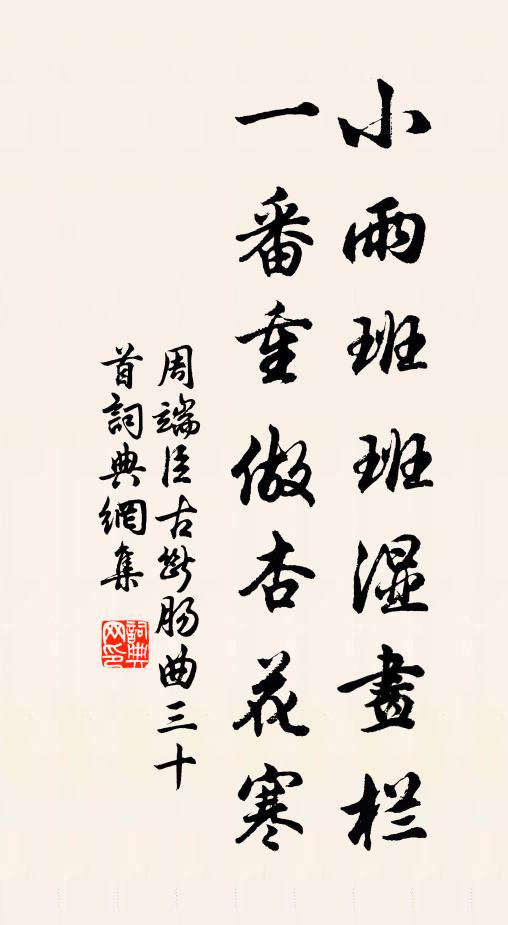 小雨班班湿畫栏
一番重做杏花寒
周端臣古断肠曲三十
首詞典網集
詞典
网印